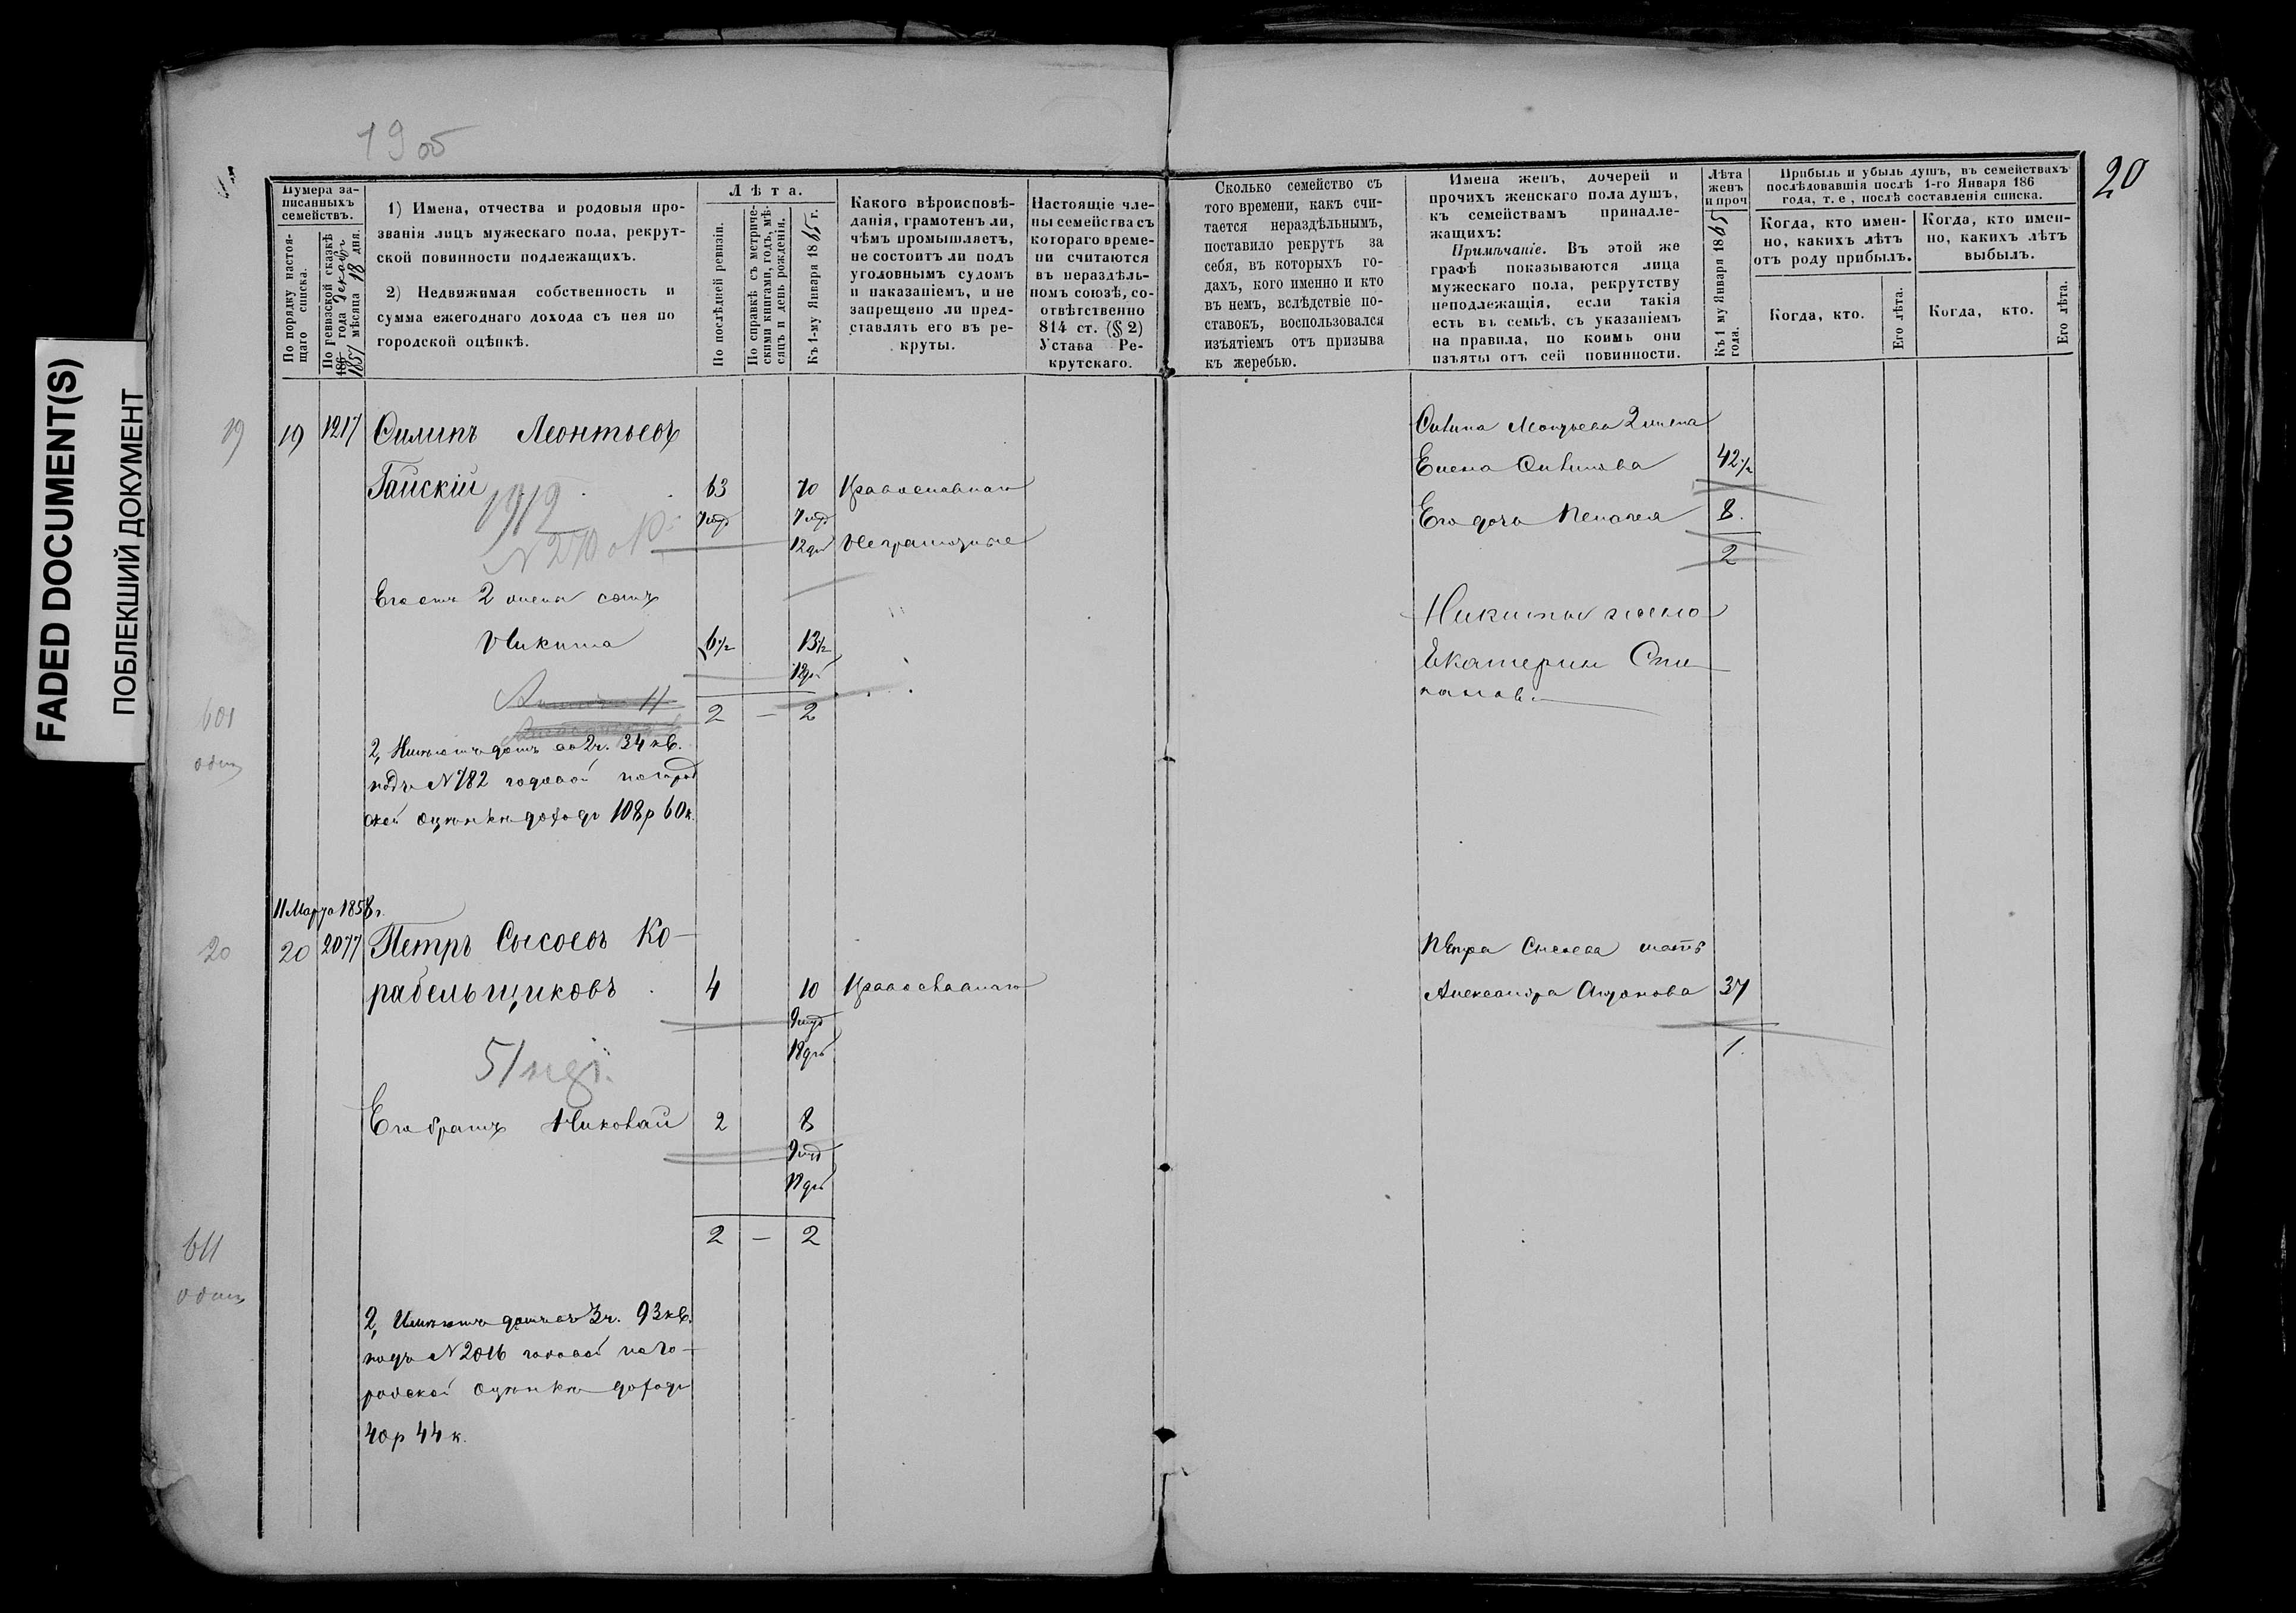 FADED DOCUMENT(S)
ПОБЛЕКШИЙ ДОКУМЕНТ
19 об
20
Нумера записанныхъ семействъ.
По порядку настоящаго списка.
По ревизской сказкѣ 1857 года Декабръ мѣсяца 18 дня.
1) Имена, отчества и родовыя прозванія лицъ мужескаго пола, рекрутской повинности подлежащихъ.
2) Недвижимая собственность и сумма ежегоднаго дохода съ нея по городской оцѣнкѣ.
Лѣта.
По послѣдней ревизіи.
По справкѣ съ метрическими книгами, годъ, мѣсяцъ и день рожденія.
Къ 1-му Января 1865 г.
Какого вѣроисповѣданія, грамотенъ ли, чѣмъ промышляетъ, не состоитъ ли подъ уголовнымъ судомъ и наказаніемъ, и не запрещено ли представлять его въ рекруты.
Настоящіе члены семейства съ котораго времени считаются въ нераздѣльномъ союзѣ, соотвѣтственно 814 ст. (§ 2) Устава Рекрутскаго.
Сколько семейство съ того времени, какъ считается нераздѣльнымъ, поставило рекрутъ за себя, въ которыхъ годахъ, кого именно и кто въ немъ, вслѣдствіе поставокъ, воспользовался изъятіемъ отъ призыва къ жеребью.
Имена женъ, дочерей и прочихъ женскаго пола душъ, къ семействамъ принадлежащихъ:
Примѣчаніе. Въ этой же графѣ показываются лица мужескаго пола, рекрутству неподлежащія, если такія есть въ семьѣ, съ указаніемъ на правила, по коимъ они изъяты отъ сей повинности.
Лѣта женъ и проч
Къ 1 му Января 1865 года.
Прибыль и убыль душъ, въ семействахъ послѣдовавшія послѣ 1-го Января 186 года, т. е., послѣ составленія списка.
Когда, кто именно, какихъ лѣтъ отъ роду прибылъ.
Когда, кто именно, какихъ лѣтъ выбылъ.
Когда, кто.
Его лѣта.
Когда, кто.
Его лѣта.
19 19 1217 Филипъ Леонтьевъ
Гайскій 63 70 Православнаго
7 мѣс 7 мѣс
12 дн Неграмотные
1912
Его отъ 2 жены сынъ
Никита 6½ 13½
12 дн
2 — 2
601
один
2, Имѣютъ домъ во 2 ч. 34 кв.
подъ № 782 годовой по город
ской оцѣнкѣ доходъ 108 р 60 к.
Филипа Леонтьева 2 жена
Елена Филипова 42½
Его дочь Пелагея 8.
2
Никиты жена
Екатерина Сте
панов.
11 Марта 1858 г.
20 20 2077 Петръ Сысоевъ Ко-
рабельщиковъ 4 10 Православнаго
9 мѣс
18 дн
Его братъ Николай 2 8
9 мѣс
11 дн
2 — 2
611
один
2, Имѣютъ домъ въ 3 ч. 93 кв.
подъ № 2016 годовой по го-
родской оцѣнкѣ доходъ
40 р 44 к.
Петра Сысоева мать
Александра Антонова 37
1.